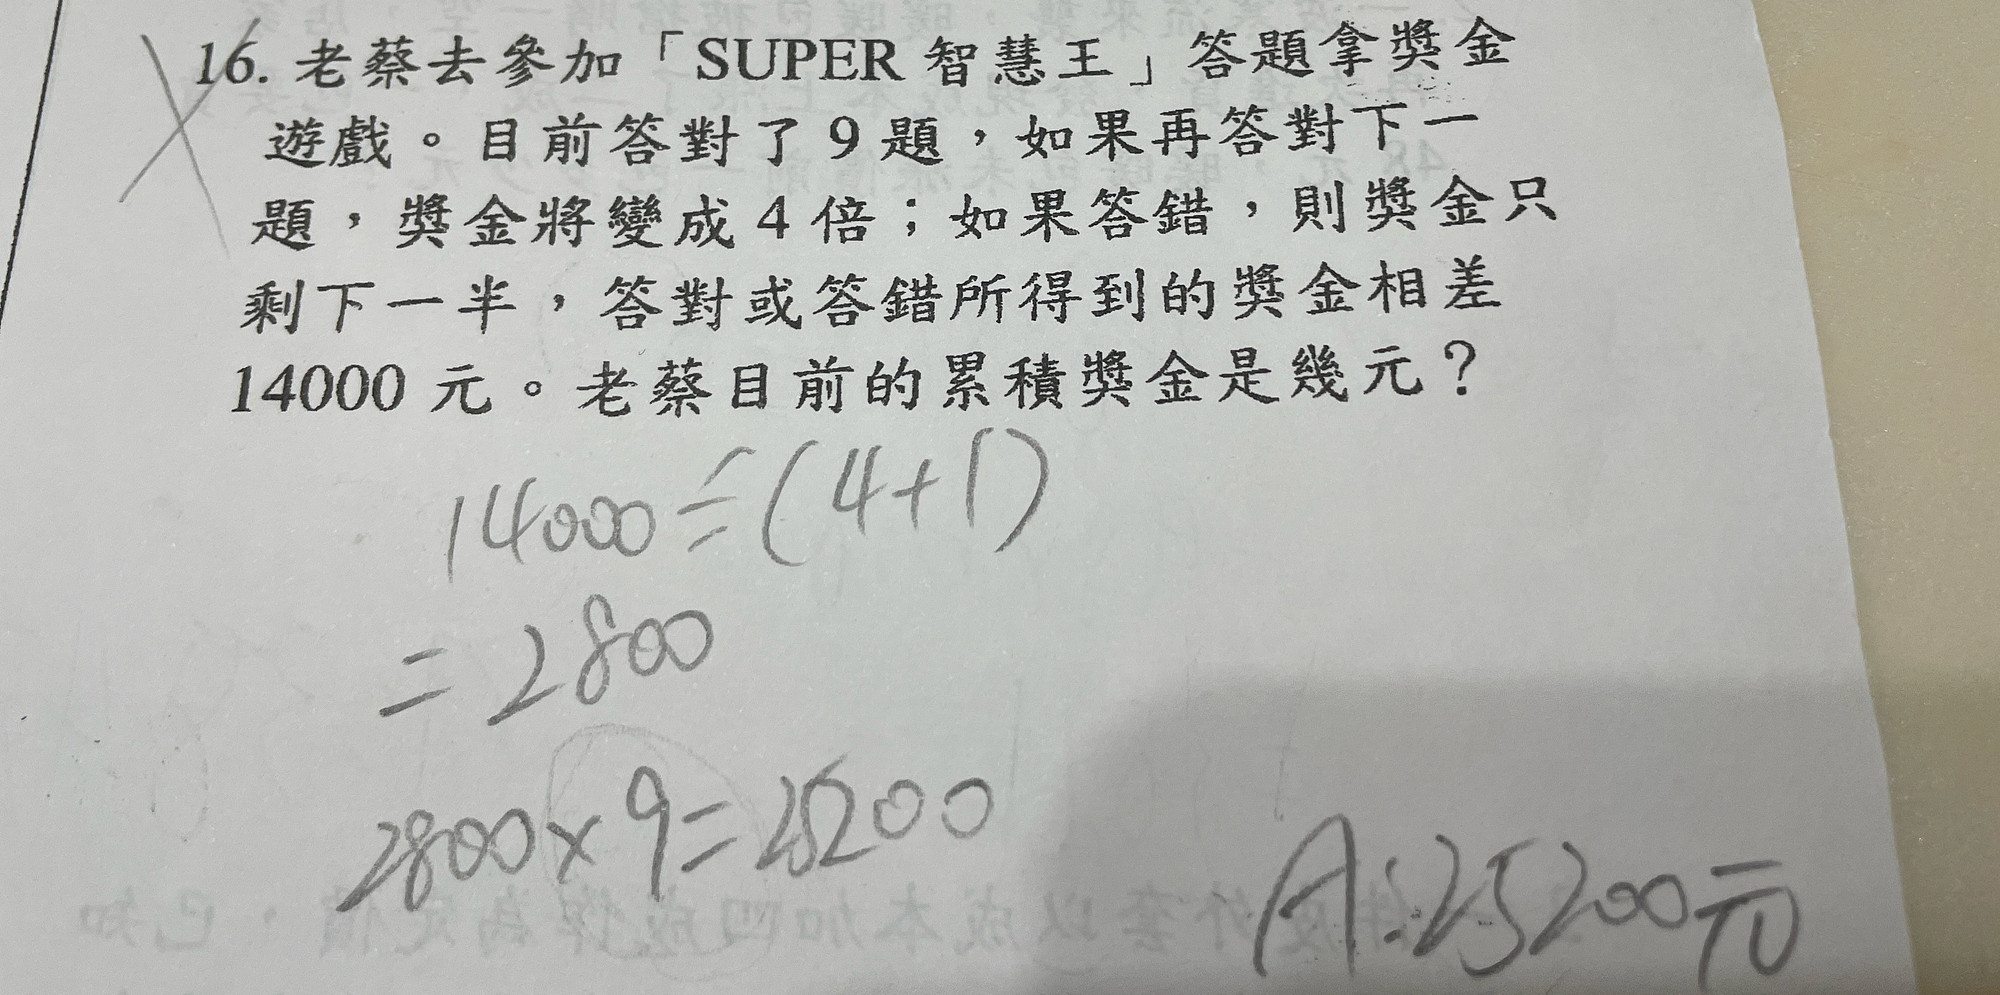 16. 老蔡去參加「SUPER 智慧王」答題拿獎金
遊戲。目前答對了 9 題，如果再答對下一
題，獎金將變成 4 倍；如果答錯，則獎金只
剩下一半，答對或答錯所得到的獎金相差
14000 元。老蔡目前的累積獎金是幾元？
14000÷(4+1)
=2800
2800×9=25200
A:25200元